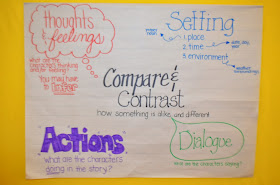 thoughts
& feelings
what are the
characters thinking
and/or feeling?
You may have
to
Setting
1. place
2. time
3. environment
Compare &
Contrast
how something is alike and different
Actions
what are the characters
doing in the story?
Dialogue
what are the characters saying?